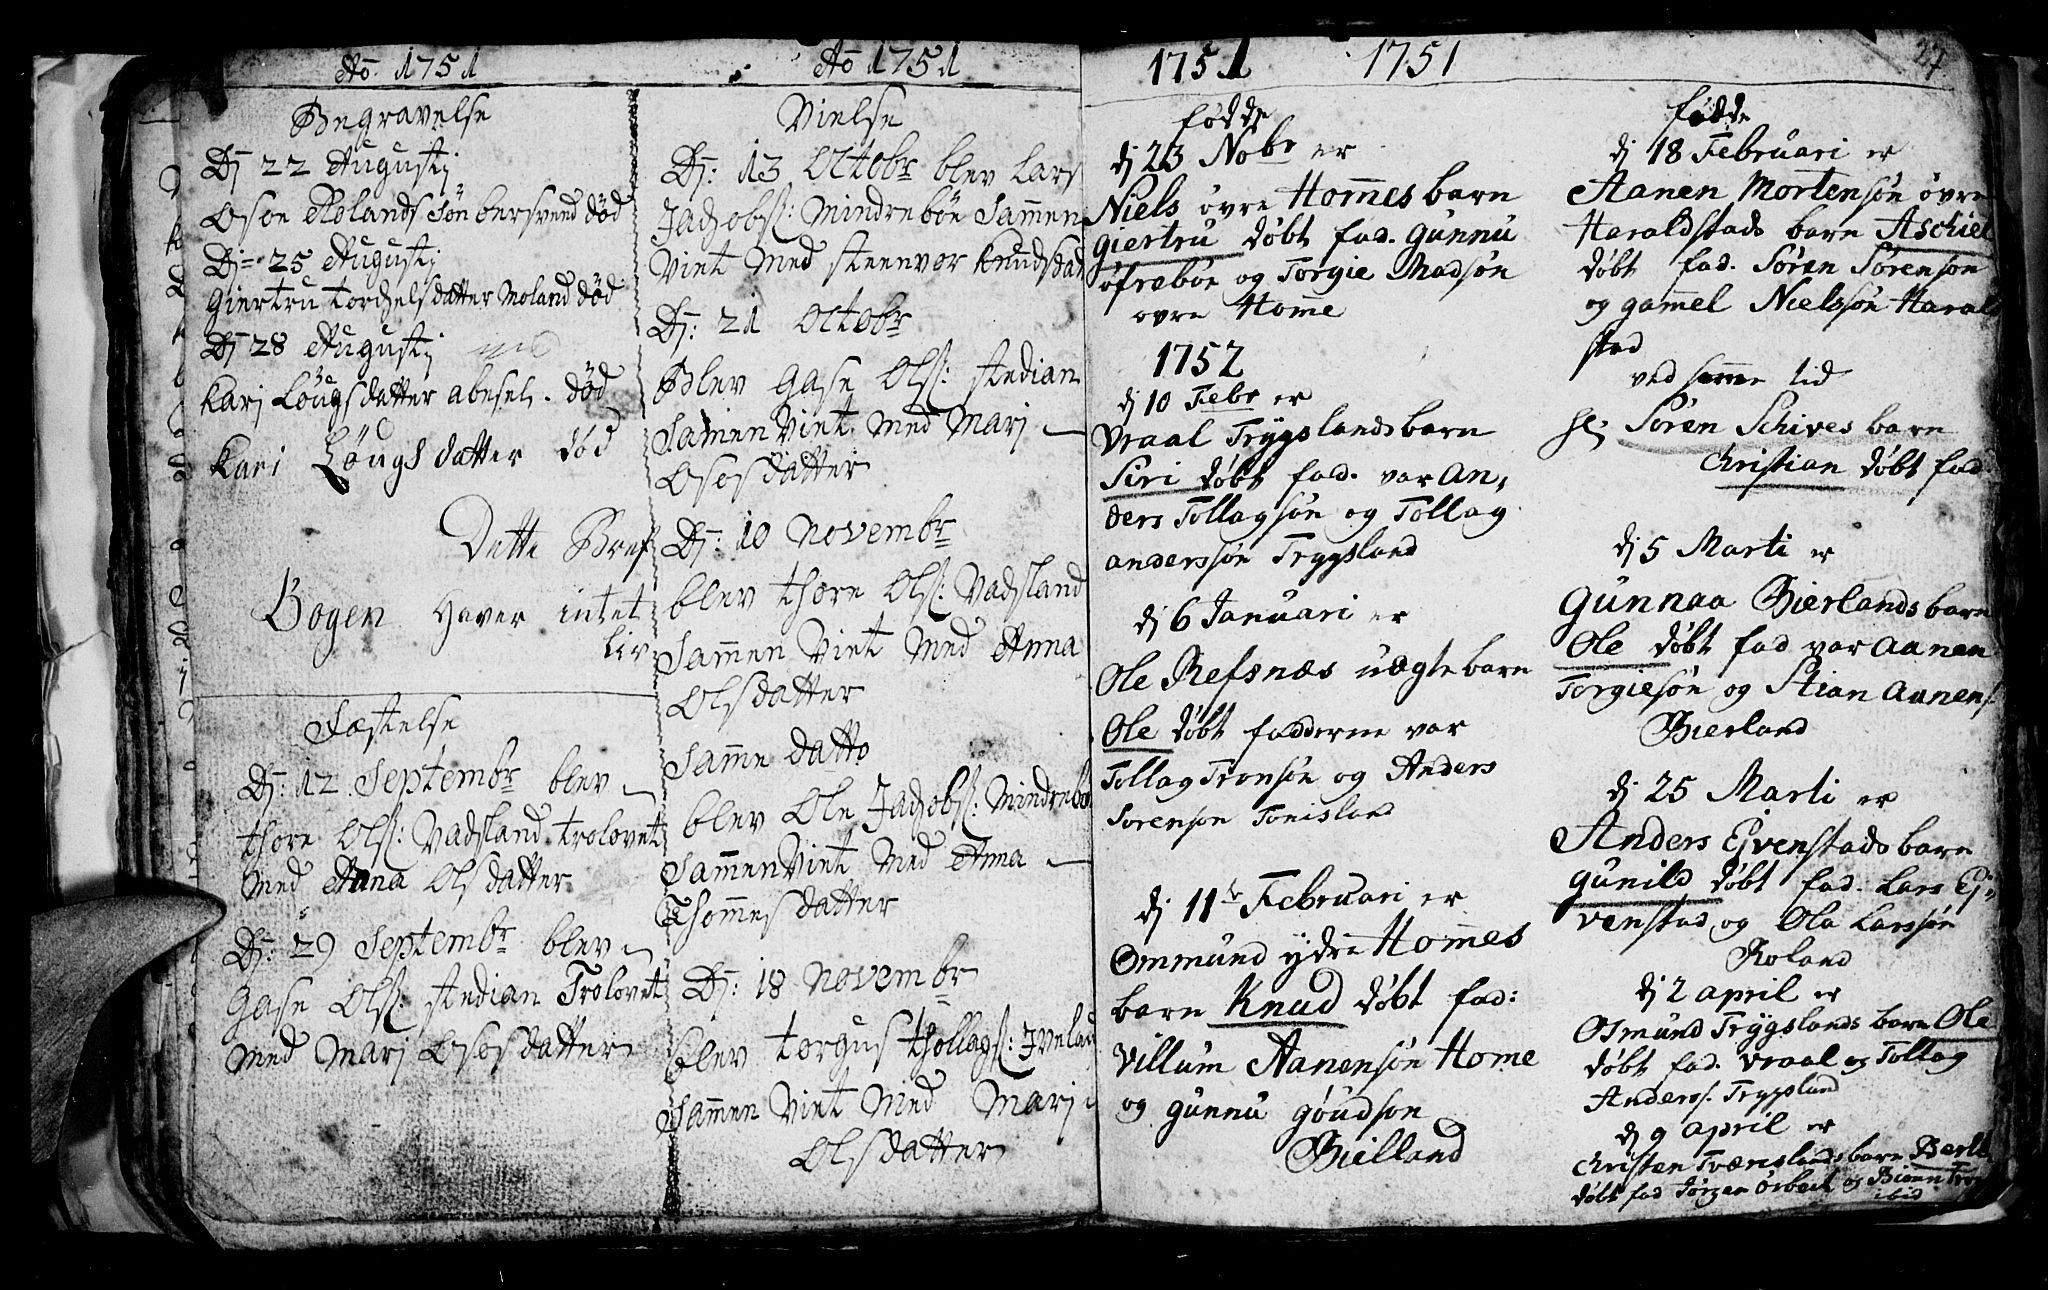 Ao 1751
Begravelse
Dj 22 Augustj
Osoe Rolands Søn bersvend død
Dj 25 Augustj
Giertru torchelsdatter Moland død
Dj 28 Augustj
Karj Løugsdatter abesel. død
Kari Løugsdatter død
Dette Bref
Bogen haver intet
liv
Fæstelse
Dj: 12 Septembr blev
thore Ols: Vadsland trolovet
med Anna Olsdatter
Dj: 29 Septembr blev
Gase Ols: stedian Trolovet
med Marj Osesdatter
Ao 1751
Vielse
Dj: 13 Octobr blev Lars
Jachobs: Mindrebøe Sammen
Viet med steenvor Knudsdat
Dj: 21 Octobr
Blev Gase Ols: stedian
Samen Viet med Marj
Osesdatter
Dj: 10 Novembr
blev thore Ols: Vadsland
Sammen Viet med Anna
Olsdatter
Samme datto
blev Ole Jachobs: Mindrebø
Sammen Viet med Anna
Thommesdatter
Dj: 18 Novembr
blev torgus thollags: Ivelan
Sammen Viet med Marj
Olsdatter
1751 1751
27
fødde
dj 23 Nobr er
Niels øvre Hommes barn
giertru døbt fad. gunnu
øfrebøn og Torgie Madsøn
ovre Homme
1752
dj 10 Febr er
Vraal Trygslands barn
Siri døbt fad. var An,
ders Tollagsøn og Tollag
anderssøn Trygsland
dj 6 Januari er
Ole Refsnæs uægte barn
Ole døbt fadderne var
Tollag Tronsøn og Anders
Sorensøn Tonisland
dj 11te Februari er
Ommund ydre Hommes
barn Knud døbt fad:
Villum Aanensøn Home
og gunnu gøudsøn
Bielland
fødde
dj 18 Februari er
Aanen Mortensøn øvre
Haraldstads barn Aschiel
døbt fad. Søren Sørensøn
og gammel Nielssøn Harald
stad
ved samme tid
Sr Søren Schives barn
Christian døbt fad
dj 5 Marti er
Gunnaa Bierlands barn
Ole døbt fad var Aanen
Torgiesøn og Stian Aanens.
Bierland
dj 25 Marti er
Anders Ejvenstads barn
gunild døbt fad. Lars Ej,
venstad og Ola Larssøn
Roland
dj 2 april er
Osmund Trygslands barn Ole
døbt fad. Vraal og Tollag
Anderss. Trygsland
dj 9 april er
Christen Tværislands barn Berte
døbt fad Jørgen Orbeck og Bionn
ibid